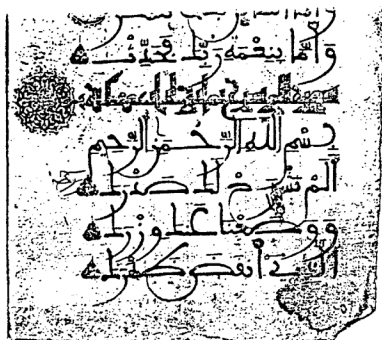 وَأَمَّا بِنِعْمَةِ رَبِّكَ فَحَدِّثْ
بِسْمِ اللَّهِ الرَّحْمَنِ الرَّحِيمِ
أَلَمْ نَشْرَحْ لَكَ صَدْرَكَ
وَوَضَعْنَا عَنْكَ وِزْرَكَ
الَّذِي أَنْقَضَ ظَهْرَكَ